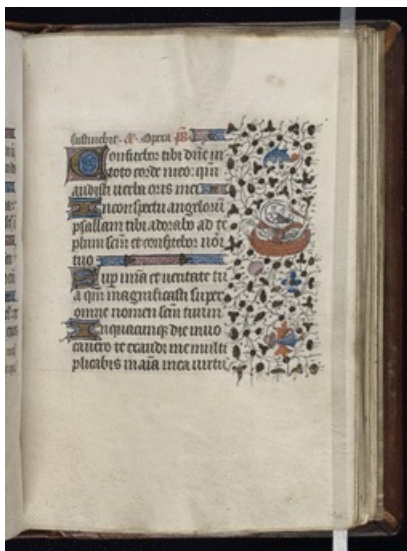 sustinebit. A. Opera ps
Confitebor tibi dñe in
toto corde meo: qm̃
audisti uerba oris mei
In conspectu angeloru᷑
psallam tibi adorabo ad te
plum scm̃ et confitebor nōi
tuo
Sup mīa et ueritate tu
a qm̃ magnificasti super
omne nomen scm̃ tuum
In quacunq; die inuo
cauero te exaudi me multi
plicabis in aīa mea uirtu